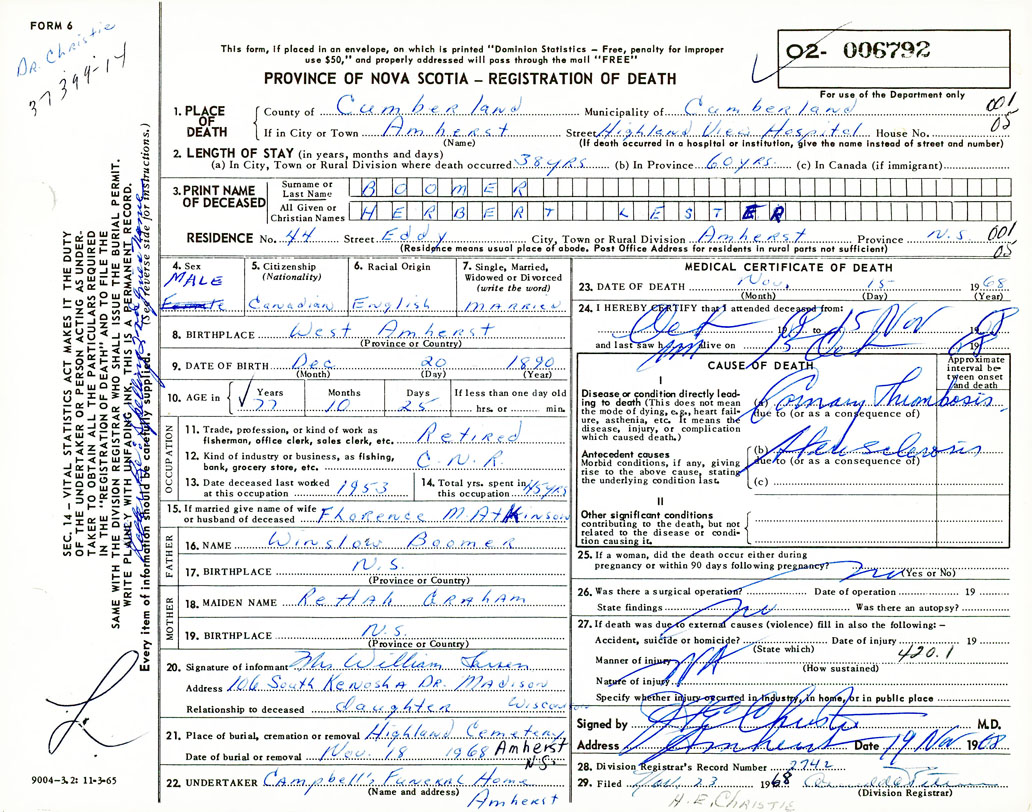 FORM 6
Dr. Christie
37399-14
This form, if placed in an envelope, on which is printed "Dominion Statistics – Free, penalty for improper
use $50," and properly addressed will pass through the mail "FREE"
PROVINCE OF NOVA SCOTIA – REGISTRATION OF DEATH
02- 006792
For use of the Department only
1. PLACE OF DEATH
County of Cumberland Municipality of Cumberland 001
If in City or Town Amherst Street Highland View Hospital House No. 05
(Name) (If death occurred in a hospital or institution, give the name instead of street and number)
2. LENGTH OF STAY (in years, months and days)
(a) In City, Town or Rural Division where death occurred 38 yrs (b) In Province 60 yrs. (c) In Canada (if immigrant)
3. PRINT NAME OF DECEASED
Surname or Last Name BOOMER
All Given or Christian Names HERBERT LESTER
RESIDENCE No. 44 Street Eddy City, Town or Rural Division Amherst Province N.S. 001
(Residence means usual place of abode. Post Office Address for residents in rural parts not sufficient) 05
4. Sex MALE Female
5. Citizenship (Nationality) Canadian
6. Racial Origin English
7. Single, Married, Widowed or Divorced (write the word) MARRIED
8. BIRTHPLACE West Amherst
(Province or Country)
9. DATE OF BIRTH Dec 20 1890
(Month) (Day) (Year)
10. AGE in Years 77 Months 10 Days 25 If less than one day old
hrs. or min.
OCCUPATION
11. Trade, profession, or kind of work as
fisherman, office clerk, sales clerk, etc. Retired
12. Kind of industry or business, as fishing,
bank, grocery store, etc. C.N.R.
13. Date deceased last worked
at this occupation 1953
14. Total yrs. spent in
this occupation 45 yrs
15. If married give name of wife
or husband of deceased Florence M. Atkinson
FATHER
16. NAME Winslow Boomer
17. BIRTHPLACE N.S.
(Province or Country)
MOTHER
18. MAIDEN NAME Rettah Graham
19. BIRTHPLACE N.S.
(Province or Country)
20. Signature of informant Mrs William
Address 106 South Kenosha Dr. Madison
Relationship to deceased daughter Wisconsin
21. Place of burial, cremation or removal Highland Cemetery
Date of burial or removal Nov. 18 1968 Amherst
N.S.
22. UNDERTAKER Campbell's Funeral Home
(Name and address) Amherst
MEDICAL CERTIFICATE OF DEATH
23. DATE OF DEATH Nov. 15 1968
(Month) (Day) (Year)
24. I HEREBY CERTIFY that I attended deceased from:
Oct 18 to 15 Nov 19
and last saw h alive on 15 Oct 19
CAUSE OF DEATH
Approximate interval between onset and death
I
Disease or condition directly lead-
ing to death (This does not mean
the mode of dying, e.g., heart fail-
ure, asthenia, etc. It means the
disease, injury, or complication
which caused death.)
(a) Coronary Thrombosis
due to (or as a consequence of)
Antecedent causes
Morbid conditions, if any, giving
rise to the above cause, stating
the underlying condition last.
(b)
due to (or as a consequence of)
(c)
II
Other significant conditions
contributing to the death, but not
related to the disease or condi-
tion causing it.
25. If a woman, did the death occur either during
pregnancy or within 90 days following pregnancy? no (Yes or No)
26. Was there a surgical operation? no Date of operation 19
State findings Was there an autopsy?
27. If death was due to external causes (violence) fill in also the following: –
Accident, suicide or homicide? Date of injury 19
(State which) 420.1
Manner of injury NA
(How sustained)
Nature of injury
Specify whether injury occurred in industry, in home, or in public place
Signed by Christie M.D.
Address Amherst Date 19 Nov 1968
28. Division Registrar's Record Number 2742
29. Filed Nov. 23 1968
(Division Registrar)
H.E. CHRISTIE
SEC. 14 – VITAL STATISTICS ACT MAKES IT THE DUTY
OF THE UNDERTAKER OR PERSON ACTING AS UNDER-
TAKER TO OBTAIN ALL THE PARTICULARS REQUIRED
IN THE "REGISTRATION OF DEATH" AND TO FILE THE
SAME WITH THE DIVISION REGISTRAR WHO SHALL ISSUE THE BURIAL PERMIT.
WRITE PLAINLY WITH UNFADING INK. THIS IS A PERMANENT RECORD.
Every item of information should be carefully supplied. (See reverse side for instructions.)
9004–3.2: 11-3-65